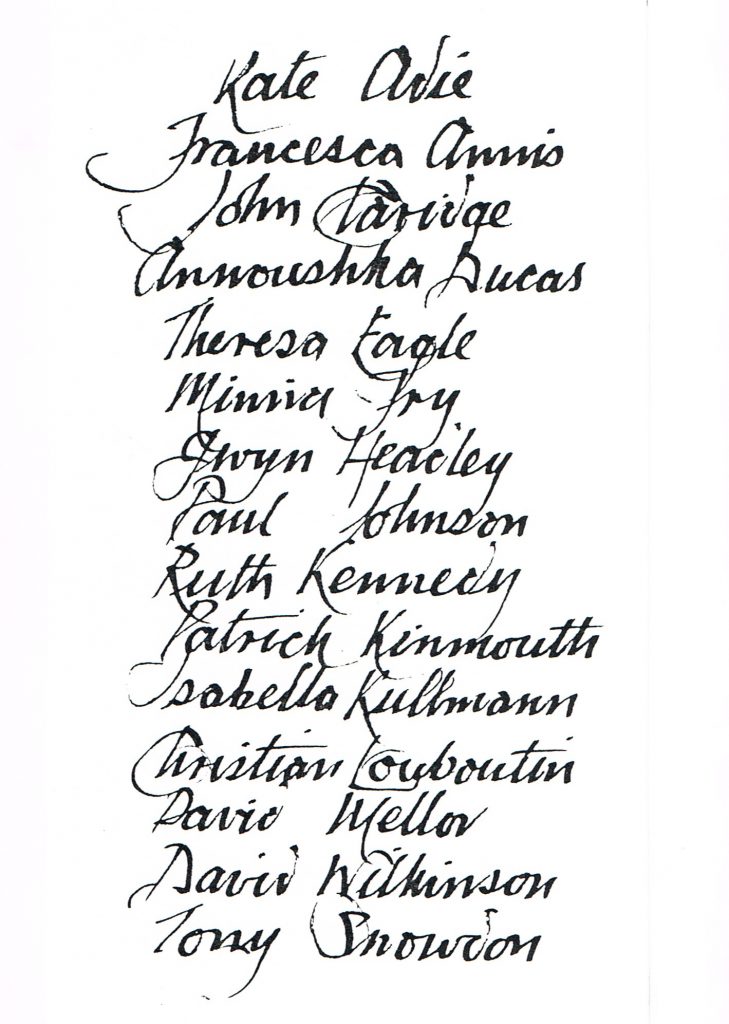 Kate Adie
Francesca Annis
John Claridge
Annoushka Ducas
Theresa Eagle
Minnia Fry
Gwyn Headley
Paul Johnson
Ruth Kennedy
Patrick Kinmouth
Isabella Kullmann
Christian Louboutin
David Mellor
David Wilkinson
Tony Snowdon